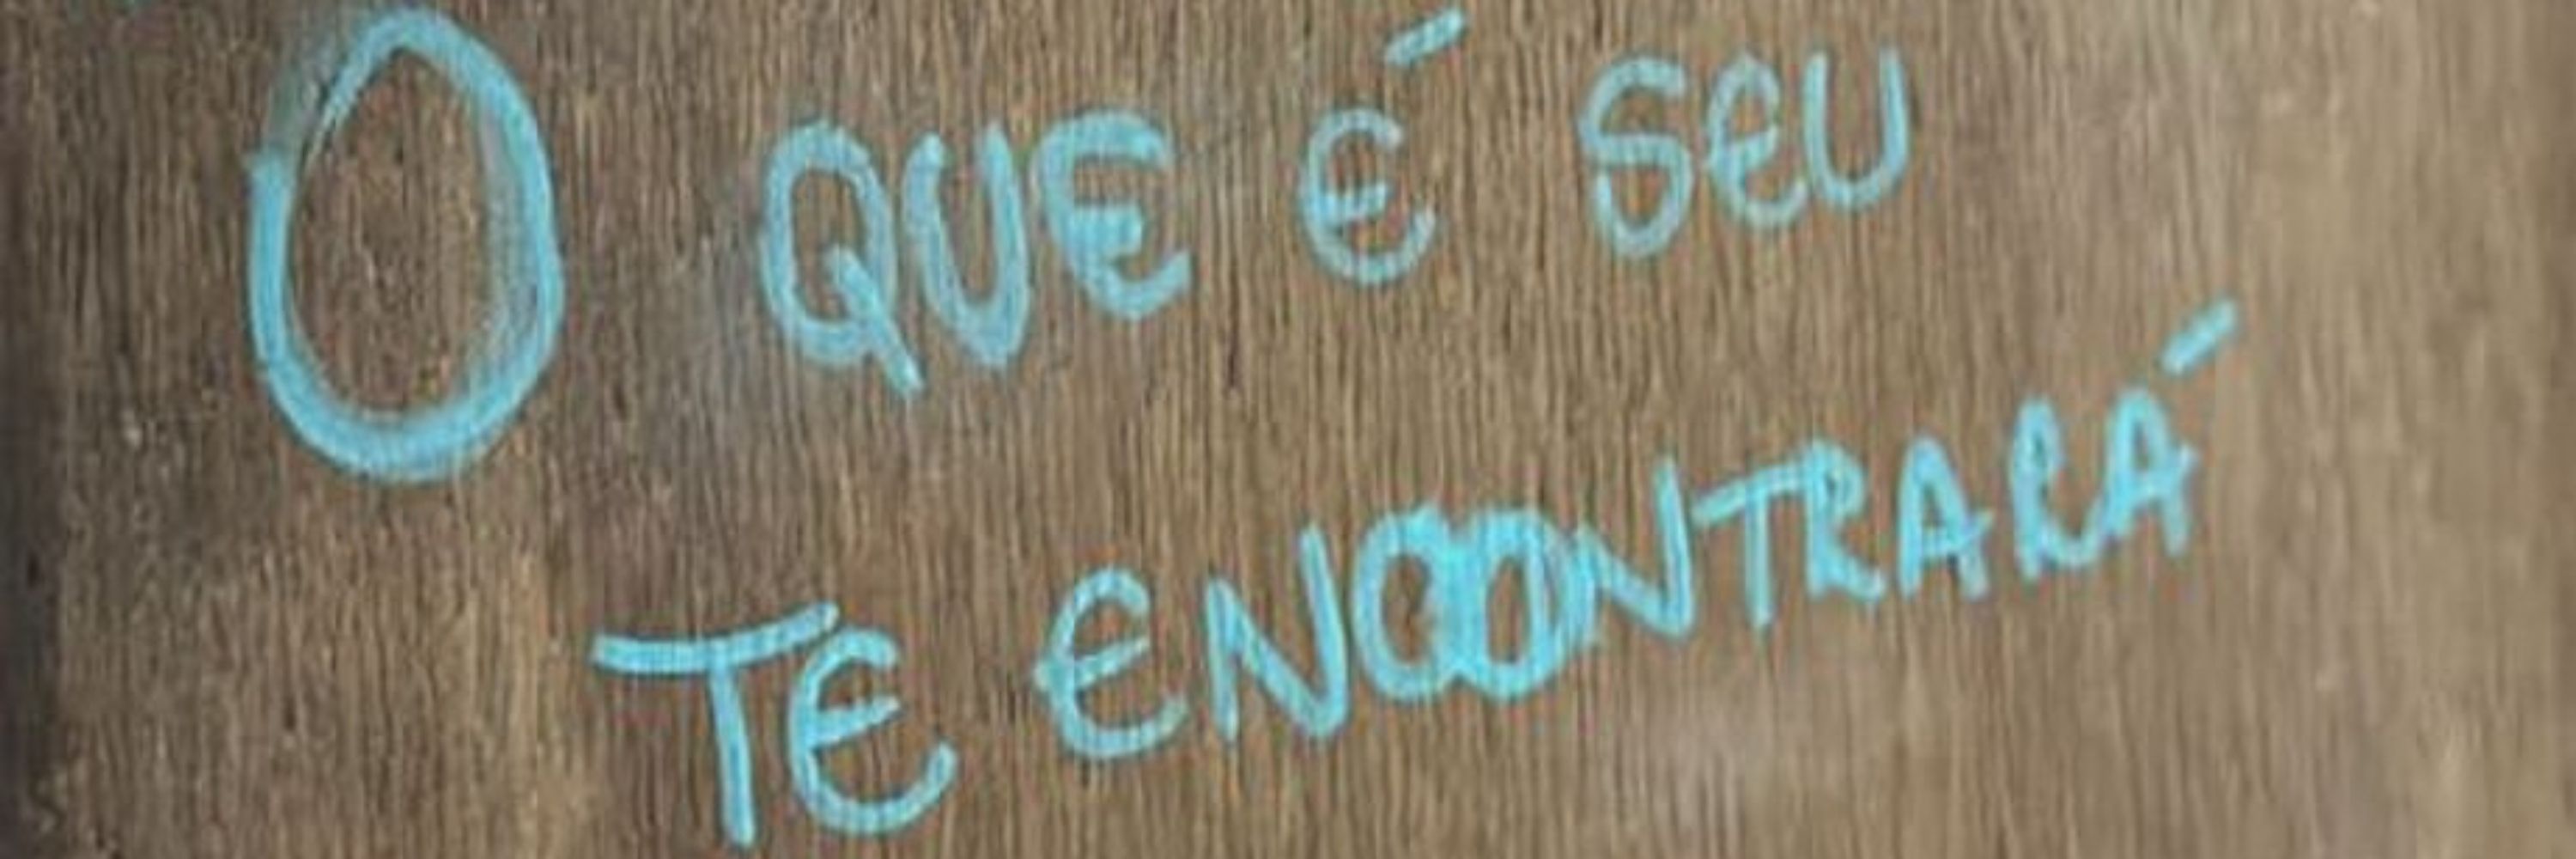 O QUE É SEU
TE ENCONTRARÁ